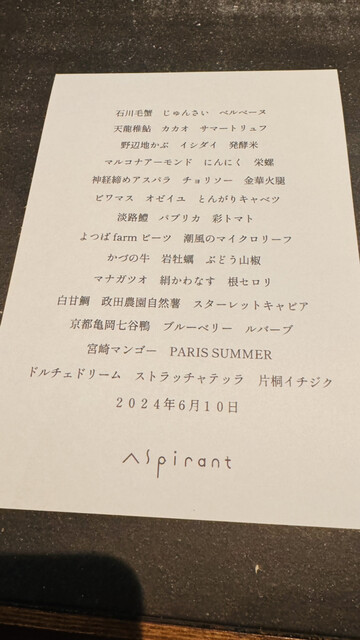 石川毛蟹　じゅんさい　ベルベーヌ
天龍稚鮎　カカオ　サマートリュフ
野辺地かぶ　イシダイ　発酵米
マルコナアーモンド　にんにく　栄螺
神経締めアスパラ　チョリソー　金華火腿
ビワマス　オゼイユ　とんがりキャベツ
淡路鱧　パプリカ　彩トマト
よつばfarmビーツ　潮風のマイクロリーフ
かづの牛　岩牡蠣　ぶどう山椒
マナガツオ　絹かわなす　根セロリ
白甘鯛　政田農園自然薯　スターレットキャビア
京都亀岡七谷鴨　ブルーベリー　ルバーブ
宮崎マンゴー　PARIS SUMMER
ドルチェドリーム　ストラッチャテッラ　片桐イチジク
2024年6月10日
Aspirant